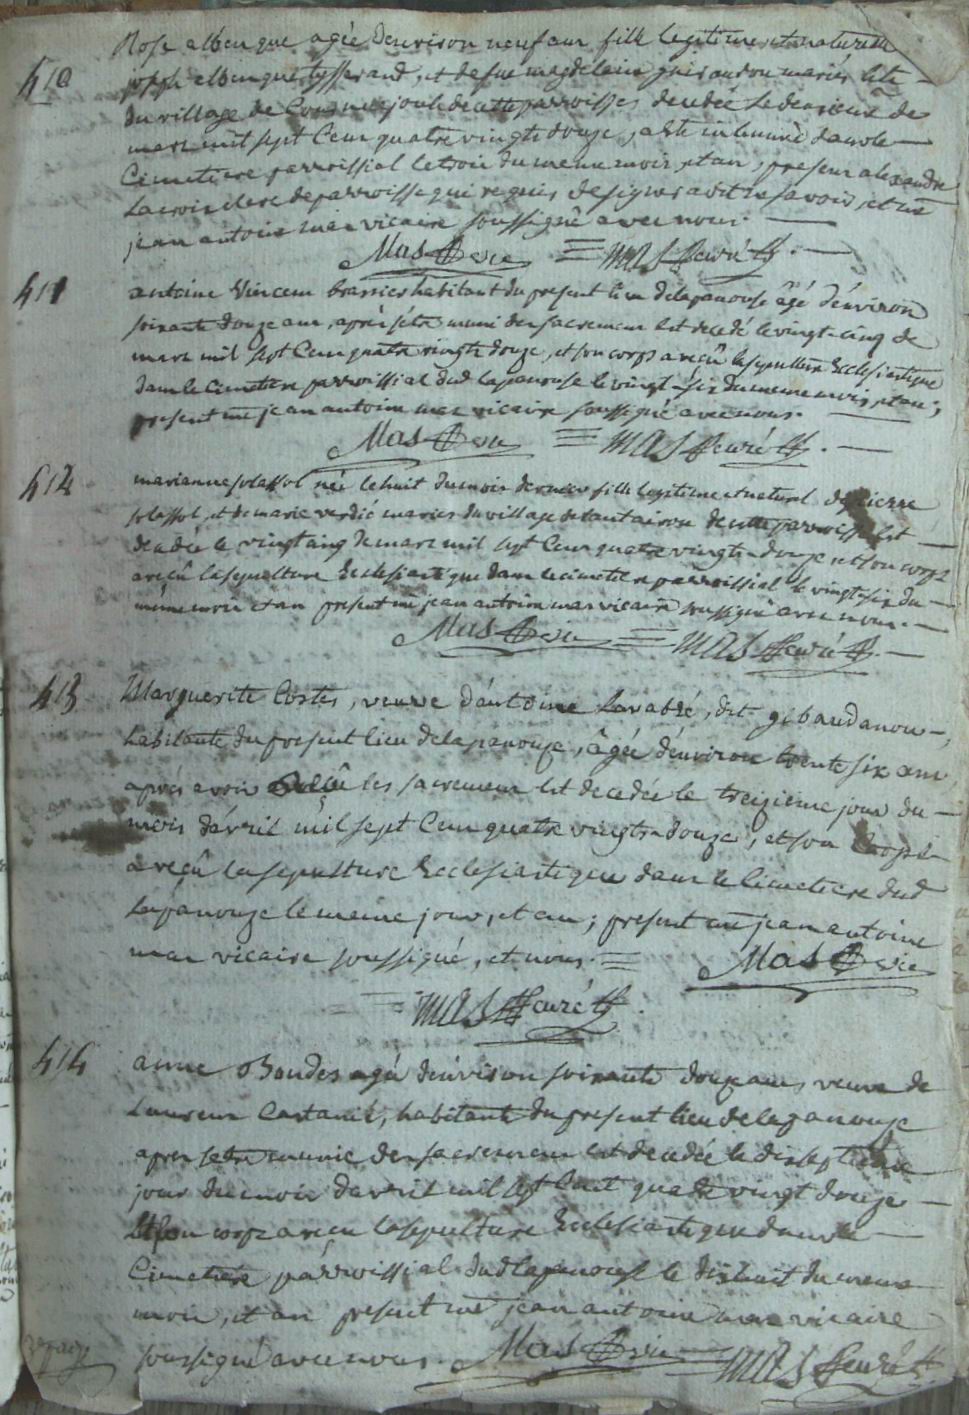 410
Rose albenque agée denviron neuf ans fille legitime et naturelle
joseph albenque tysserand, et de fue magdelaine mariés
du village de de cette parroisse, decedée le deuxieme de
mars mil sept Cens quatre vingts douze, a ete inhumé dans le
Cimetiere parroissial le trois du meme mois, et an, present alexandre
Lacroix clerc de parroisse qui requis de signer a dit ne savoir, et mr
jean antoine mas vicaire soussigné avec nous.
Mas vic = Mas curé
411
antoine Vincens brassier habitant du present lieu de lapanouse âgé d'énviron
soixante douze ans, après s'étre muni des sacremens est decedé le vingt-cinq de
mars mil sept Cens quatre vingts douze, et son corps a reçû la sepulture Ecclesiastique
dans le Cimetiere parroissial dud lapanouse le vingt-six du meme mois, et an;
present mr jean antoine mas vicaire soussigné avec nous.
Mas vic = Mas curé
412
marianne solassol née le huit du mois dernier fille legitime et naturel de pierre
solassol, et de marie verdié mariés du village de de cette parroisse est
decedée le vingt cinq de mars mil sept Cens quatre vingts-douze et son corps
a reçû la sepulture Ecclesiastique dans le cimetiere parroissial le vingt-six du
même mois et an present mr jean antoine mas vicaire soussigné avec nous.
Mas vic = Mas curé
413
Marguerite Costes, veuve d'antoine Lavabre, dit gibaudanou,
habitante du present lieu de lapanouse, âgée d'énviron trente six ans
aprés avoir reçû les sacremens est decedée le treizieme jour du
mois d'avril mil sept Cens quatre vingts-douze, et son Corps
a reçû la sepulture Ecclesiastique dans le Cimetiere dud
Lapanouze le meme jour, et an; present mr jean antoine
mas vicaire soussigné, et nous. = Mas vic
= Mas curé
414
anne Boudes agée d'énviron soixante douze ans, veuve de
Laurens Castanié, habitante du present lieu de lapanouse
apres s'etre munie des sacremens est decedée le dixseptieme
jour du mois d'avril mil sept Cent quatre vingt douze
Et son corps a recu la sepulture Ecclesiastique dans le
Cimetiere parroissial dud lapanouse le dixhuit du meme
mois, et an present mr jean antoine mas vicaire
soussigné avec nous. Mas vic = Mas curé